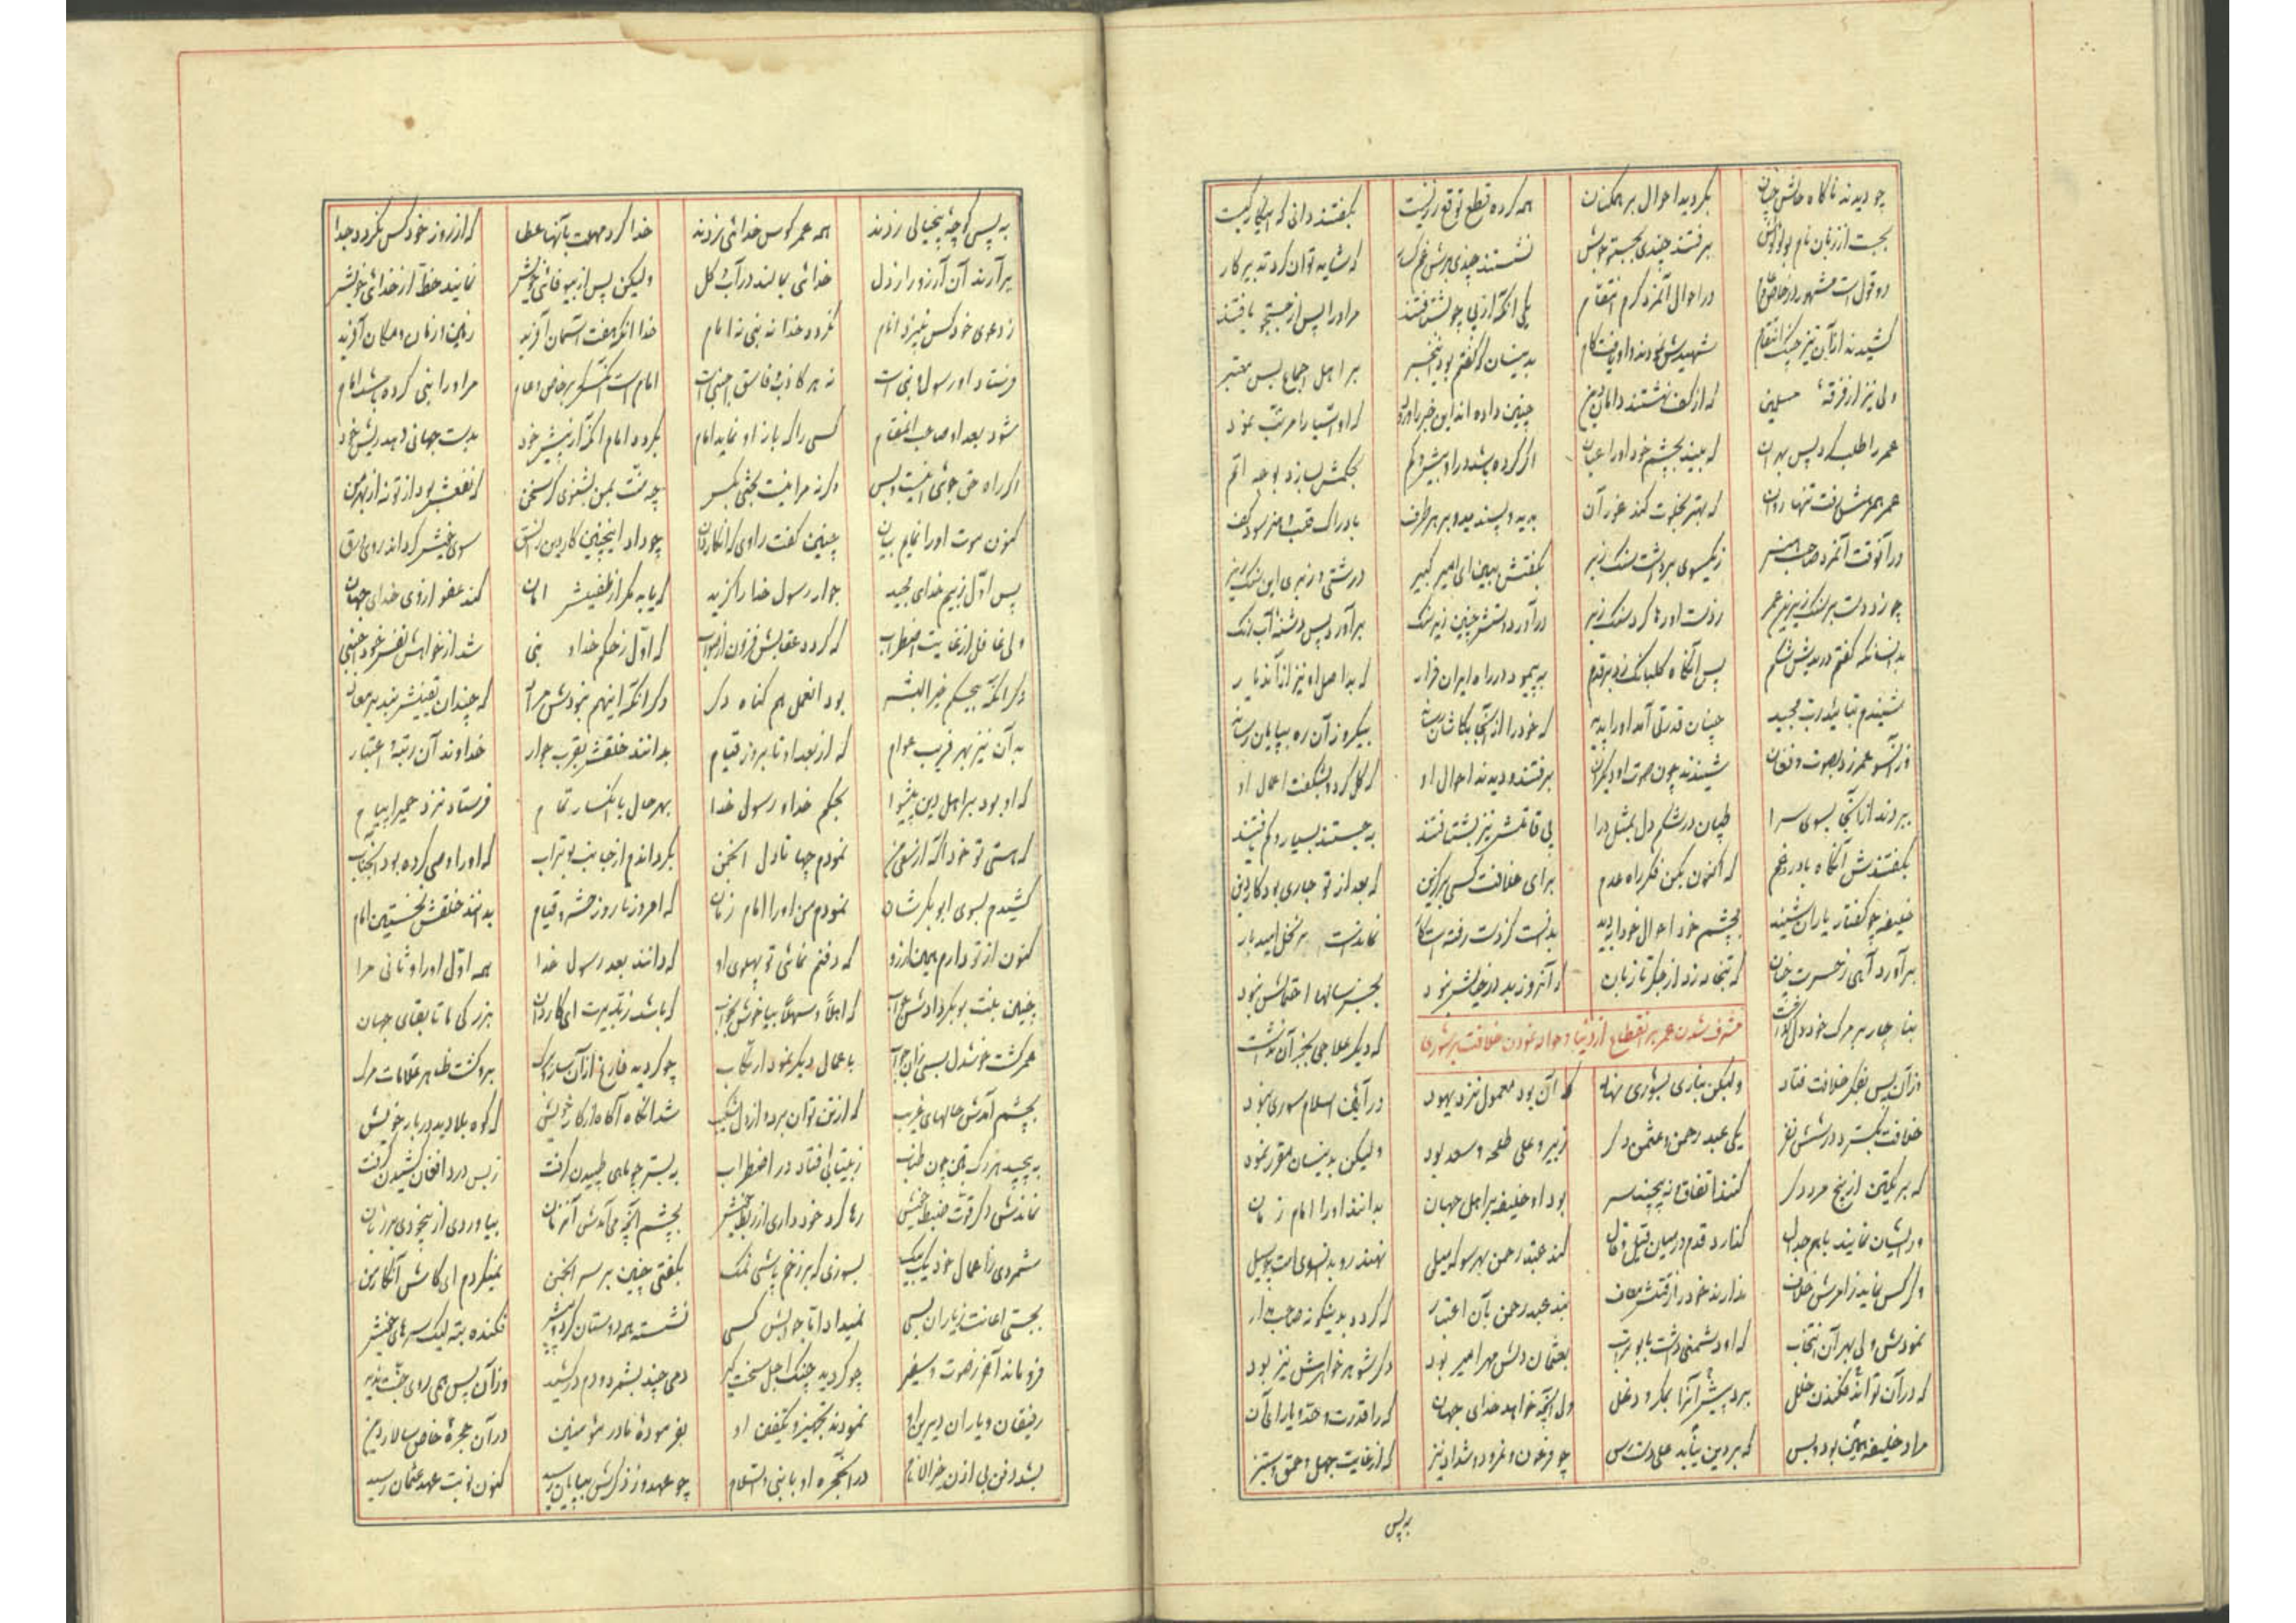 چو دیدند ناکاه حالش چنان بکردید احوال بر همکنان همه کرده قطع توقع ززیست بکفتند دانی که این کار کیست
بجست از زبان نام بولؤلؤش برفتند چندی بجست و جویش نشستند چندی برش که شاید توان کرد تدبیر کار
دو قول است مشهور در خاص و عام در احوال آنمرد کرم انتقام یکی آنکه از پی چو بشتافتند مر او را پس از جستجو یافتند
کشیدند از آن نیز چنک انتقام شهیدش نمودند و او یافت کام بدینسان که کفتم بود این خبر بر اهل اجماع بس معتبر
ولی نیز از فرقهٔ مسلمین که از کف نهشتند دامان دین چنین داده اند این خبر راویان که او آسیا را مرتب نمود
عمر را طلب کرد پس بهر آن که بیند بچشم خود او را عیان اکر کرده باشد در او بیش و کم بحکمش بسازد بوجه اتم
عمر همرهش رفت تنها روان که بهتر بخلوت کند غور آن بدید و پسندید و بر هر طرف
در آنوقت آنمرد صاحب هنر ز یکسوی برداشت سنک زبر بکفتش ببین ای امیر کبیر درشتی و نرمی این سنک زیر
چو زد دست بر سنک زیرین عمر ز دست او رها کرد سنک زبر در آورد دستش چنین زیر سنک بر آورد پس دشنهٔ آب رنک
بدانسانکه کفتم دریدش شکم پس آنکاه کلبانک زد بر قدم به پیمود در راه ایران فرار که بد اصل او نیز از آن دیار
شنیدم بتائید رب مجید چنان قدرتی آمد او را پدید که خود را از آنجا بکاشان رساند بیکروز آن ره بپایان رساند
وز آنسو عمر زد بصوت و فغان شنیدند چون صوت او دیکران برفتند و دیدند احوال او که کل کرد بشکفت اعمال او
ببردند از آنجا بسوی سرا طپان در شکم دل بمثل درا پی قاتلش نیز بشتافتند بجستند بسیار و کم یافتند
بکفتندش آنکاه با درد و غم که اکنون بکن فکر راه عدم برای خلافت کسی برکزین که بعد از تو جاری بود کار دین
خلیفه چو کفتار یاران شنید بچشم خود احوال خود را بدید بدانست کز دست رفته است کار نماندست بر نخل امید بار
برآورد آهی ز حسرت چنان که تبخاله زد از جکر تا زبان بجز سالها اختلاطش نبود
بناچار بر مرک خود دل کذاشت که دیکر علاجی بجز آن نداشت
مشرف شدن عمر بر انقطاع از دنیا و حواله نمودن خلافت بر شوری
وز آن پس بفکر خلافت فتاد ولیکن بنا را بشوری نهاد که آن بود معمول نزد یهود در آئین اسلام شوری نبود
خلافت بکسترد در شش نفر یکی عبد رحمن و عثمن دکر زبیر و علی طلحه و سعد بود ولیکن بدینسان مقرر نمود
که بر یکتن از پنج مرد دکر کنند اتفاق ار نه پیچند سر بود او خلیفه بر اهل جهان بدانند او را امام زمان
ور ایشان نمایند با هم جدال کذارد قدم در میان قیل و قال کند عبد رحمن بهر سو که میل نهند رو بدانسوی امت چو سیل
و کر کس نماید ز امرش خلاف ندارند خود را ز قتلش معاف بند عبد رحمن بآن اعتبار که کردد بدینکونه صاحب مدار
نمودش ولی بهر آن انتخاب که او دشمنی داشت با بوتراب بعثمان دلش مهر آمیز بود دکر شوهر خواهرش نیز بود
که در آن تواند فکندن خلل برد پیش آنرا بمکر و دغل ول آنچه خواهد خدای جهان کرا قدرت و حد و یارای آن
مراد خلیفه همین بود و بس که بر دین نیابد علی دسترس چو فرعون و نمرود و شداد نیز که از غایت جهل و حمق و ستیز
به پس
به پس کوچهٔ بیخیالی زدند همه عمر کوس خدائی زدند خدا کرد مهلت بآنها عطا که از روز خود کس نکردد جدا
برآرند آن آرزو را ز دل خدائی نمایند در آب و کل ولیکن پس از بیوفائی خویش نمایند حظ از خدائی خویش
ز دعوی خود کس نیزد انام نکردد خدا نه نبی نه امام خدا آنکه هفت آسمان آفرید زمین و زمان و مکان آفرید
فرستاد او رسول و نبی است نه هر کاذب و فاسق اجنبی است امام است آنکس که بر خاص و عام مر او را نبی کرده باشد امام
شود بعد او صاحب انتقام کسی را که باز او نماید امام نکردد امام آنکه از پیش خود بدست جهانی دهد ریش خود
اکر راه حق جوئی اینست و بس وکرنه مرا نیست بحثی بکس چه منت بمن بشنوی کر سخن که نفعش بود از تو نه از بهر من
کنون موت او را نمایم بیان چنین کفت راوی کز آن کاردان چو داد اینچنین کار دین را نسق سوی خویش کرداند روی ورق
پس اول ز بیم خدای مجید جوار رسول خدا را کزید که یابد مکر از طفیلش امان کند عفو از وی خدای جهان
ولی غافل از غایت اضطراب که کردد عقابش فزون از صواب که اول ز حکم خدا و نبی شد از خواهش نفس خود اجنبی
دکر آنکه بیحکم خیر البشر بود انعمل هم کناه دکر دکر آنکه اینهم نبودش مراد که چندان تعینش بدید در معاد
به آن نیز بهر فریب عوام که از بعد او تا بروز قیام بدانند خلقش بقرب جوار خداوند آن رتبه و اعتبار
که او بود بر اهل دین پیشوا بحکم خدا و رسول خدا بهر حال با انکسار تمام فرستاد نزد حمیرا پیام
که هستی تو خود آکه از سعی من نمودم چها تا دل انجمن بکرداندم از جانب بوتراب که او را وصی کرده بود آنجناب
کشیدم بسوی ابوبکر شان نمودم من او را امام زمان که امروز تا روز حشر و قیام بدانند خلقش نخستین امام
کنون از تو دارم همین آرزو که دفنم نمائی تو پهلوی او که دانند بعد رسول خدا همه اول او را و ثانی مرا
چنین بنت بوبکر دادش جواب که اهلا و سهلا بیا خوش بخواب که باشد ز تدبیرت ای کاردان بزرکی ما تا بقای جهان
عمر کشت خوشدل بسی زان جواب باعمال دیکر نمود ارتکاب چو کردید فارغ از آن ساز و برک برو کشت ظاهر علامات مرک
بچشم آمدش حالهای غریب که از تن توان برد و از دل شکیب شد آنکاه آکاه از کار خویش که کوه بلا دید در بار خویش
به پیچید هر رک بتن چون طناب ز بیتابی افتاد در اضطراب به بستر چو ماهی طپیدن کرفت ز بس درد افغان کشیدن کرفت
نماندش دکر قوت ضبط خویش رها کرد خودداری از ربط خویش بچشم آنچه می آمدش آنزمان بیاوردی از بیخودی بر زبان
شمردی ز اعمال خود یک بیک بسوزی که بر زخم پاشی نمک بکفتی چنین بر سر انجمن نمیکردم ای کاش آنکار من
بجستی اعانت ز یاران بسی نمیداد اما جوابش کسی نشسته همه دوستان کرد و پیش فکنده بته لیک سرهای خویش
فرو ماند آخر ز صوت و صفیر چو کردید چنک اجل سخت کیر دمی چند بشمرد و دم در کشید وز آن پس همی روی جنت ندید
رفیقان و یاران دیرین او نمودند تجهیز و تکفین او بفرمودهٔ مادر مؤمنین در آن حجرهٔ خاص سالار دین
بشد دفن بی اذن خیر الانام در آنحجره او با نبی والسلام چو عهد وز ذکرش بپایان رسید کنون نوبت عهد عثمان رسید